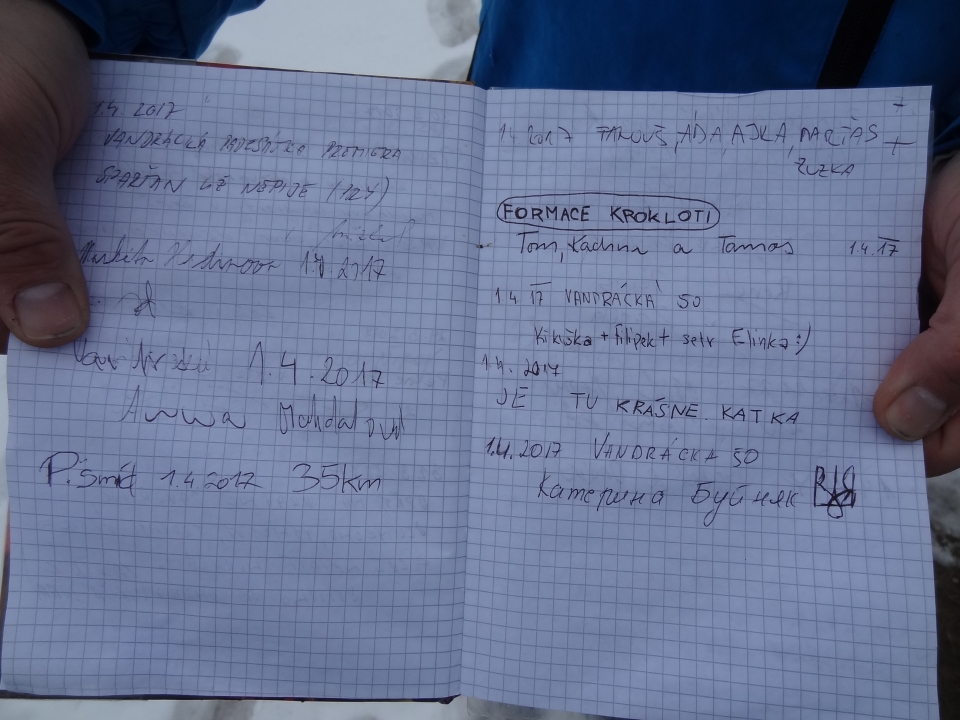 1.4. 2017
VANDRÁCKÁ PADESÁTKA PREMIÉRA
SPARŤAN UŽ NEPIJE (124)
1.4.2017
1.4.2017
Anna
P. Šmíd 1.4.2017 35km
1.4.2017 FANOUŠ, ÁĎA, AJKA, MARŤAS
ZUZKA
FORMACE KROKLOTI
Tom, a Tomas 1.4.17
1.4.17 VANDRÁCKÁ 50
Kikuška + Filípek + setr Elinka :)
1.4. 2017
JE TU KRÁSNĚ KATKA
1.4.2017 VANDRÁCKA 50
Катерина Буйняк